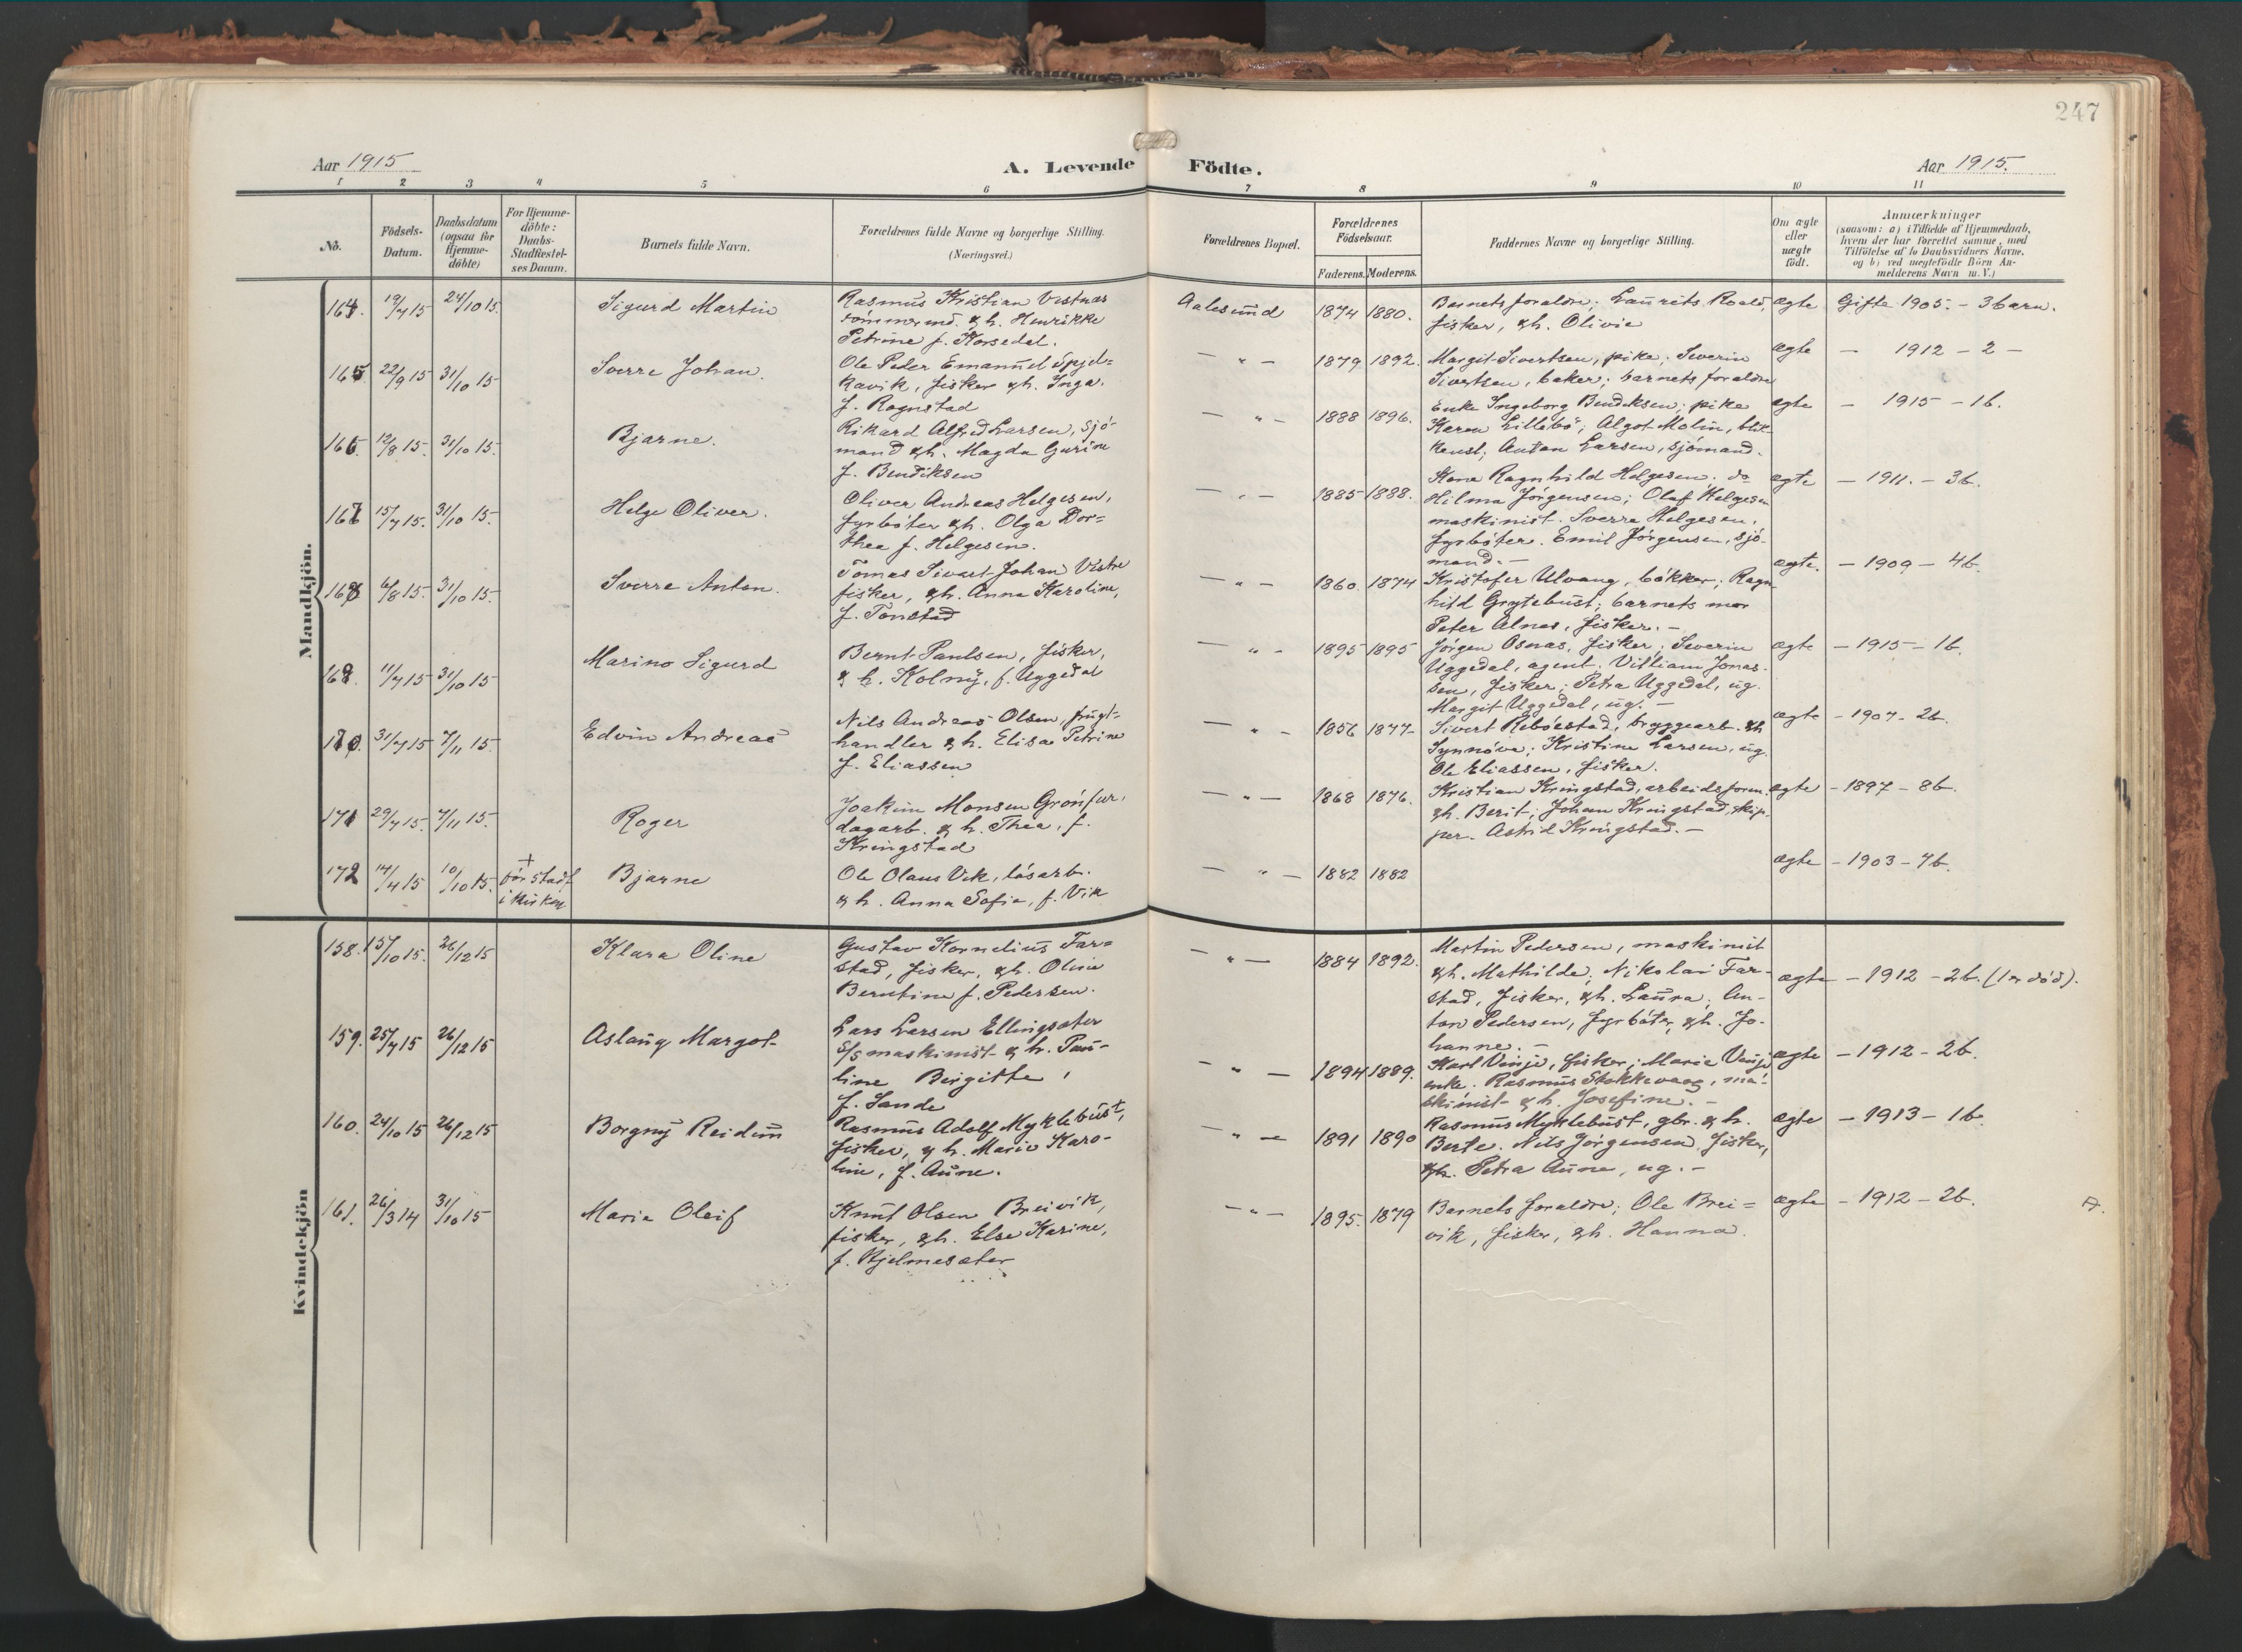 247
Aar 1915
A. Levende Födte.
Aar 1915.
1 2 3 4 5 6 7 8 9 10 11
No.
Födsels-
Datum.
Daabsdatum
(ogsaa for
Hjemme-
döbte)
For Hjemme-
döbte:
Daabs-
Stadfæstel-
ses Datum.
Barnets fulde Navn.
Forældrenes fulde Navne og borgerlige Stilling.
(Næringsvei.)
Forældrenes Bopæl.
Forældrenes
Födselsaar.
Faderens. Moderens.
Faddernes Navne og borgerlige Stilling.
Om ægte
eller
uægte
födt.
Anmærkninger
(saasom: a) i Tilfælde af Hjemmedaab,
hvem der har forrettet samme, med
Tilföielse af to Daabsvidners Navne,
og b) ved uægtefödte Börn An-
melderens Navn m. V.)
Mandkjön.
164. 19/7 15 24/10 15. Sigurd Martin
Rasmus Kristian Vestnæs
tömmermd. & h. Henrikke
Petrine f. Korsedal.
Aalesund 1874 1880.
Barnets foraldre; Laurits Roald,
fisker, & h. Olivie
ægte Gifte 1905. - 3 barn.
165 22/9 15 31/10 15 Sverre Johan.
Ole Peder Emanuel Spjel=
kavik, fisker & h. Inga.
f. Rognstad
— " — 1879 1892.
Margit Sivertsen, pike; Severin
Sivertsen, baker; barnets foraldre
ægte — 1912 - 2 —
166. 12/8 15. 31/10 15. Bjarne.
Rikard Alfred Larsen, sjö-
mand & h. Magda Gurine
f. Bendiksen
— " — 1888 1896.
Enke Ingeborg Bendiksen; pike
Karen Lillebö; Algot Molin, blik-
kensl; Anton Larsen, sjömand.
ægte — 1915 - 1 b.
167 15/7 15. 31/10 15. Helge Oliver.
Oliver Andreas Helgesen,
fyrböter & h. Olga Dor=
thea f. Helgesen.
— " — 1885 1888.
Kone Ragnhild Helgesen; do
Hilma Jörgensen; Olaf Helgesen
maskinist. Sverre Helgesen,
fyrböter. Emil Jörgensen, sjö-
mand. —
ægte — 1911. - 3 b.
168 6/8 15. 31/10 15. Sverre Anton.
Tomas Sivert Johan Vestre
fisker, & h. Anna Karoline,
f. Tonstad
— " — 1860. 1874
Kristofer Ulvang, bökker; Ragn-
hild Grytebust; barnets mor
Peter Alnes, fisker. —
ægte. — 1909 - 4 b.
168. 11/7 15 31/10 15 Marino Sigurd
Bernt Paulsen, fisker,
& h. Kolny, f. Uggedal
— " — 1895 1895
Jörgen Osnas, fisker; Severin
Uggedal, agent. Villiam Jonas-
sen, fisker; Petra Uggedal, ug.
Margit Uggedal, ug. —
ægte — 1915 - 1 b.
170. 31/7 15 7/11 15. Edvin Andreas
Nils Andreas Olsen, frugt-
handler & h. Elisa Petrine
f. Eliassen
— " — 1856 1877
Sivert Rebóestad, bryggearb. & h
Synnöve; Kristine Larsen, ug.
Ole Eliassen, fisker.
ægte — 1907 - 2 b.
171 29/7 15. 7/11 15. Roger
Joakim Monsen Grónfur,
dagarb. & h. Thea, f.
Kringstad
— " — 1868 1876.
Kristian Kringstad, arbeidsform.
& h. Berit; Johan Kringstad, skip-
per. Astrid Kringstad. —
ægte — 1897 - 8 b.
172 14/4 15 10/10 15. +
bör stadf
i kirken
Bjarne
Ole Olaus Vik, lösarb.
& h. Anna Sofie, f. Vik
— " — 1882 1882
ægte — 1903 - 7 b.
Kvindekjön
158. 15/10 15. 26/12 15 Klara Oline
Gustav Kornelius Far=
stad, fisker, & h. Oline
Berntine f. Pedersen.
— " — 1884 1892.
Martin Pedersen, maskinist
& h. Mathilde; Nikolai Far-
stad, fisker, & h. Laura; An-
ton Pedersen, fyrböter, & h. Jo-
hanne. —
ægte — 1912 - 2 b. (1 er död).
159. 25/7 15 26/12 15 Aslaug Margot
Lars Larsen Ellingsæter
S/S maskinist & h. Pau-
line Birgitte,
f. Sande
— " — 1894 1889.
Karl Vinje, fisker; Marie Vinje
enke. Rasmus Stokkevaag, ma-
skinist & h. Josefine. —
ægte — 1912 - 2 b.
160. 24/10 15 26/12 15 Borgny Reidun
Rasmus Adolf Myklebust,
fisker, & h. Marie Karo-
line, f. Aune.
— " — 1891 1890
Rasmus Myklebust, gbr. & h.
Berte. Nils Jörgensen, fisker,
& h. Petra Aune, ug. —
ægte — 1913 - 1 b.
161. 26/3 14 31/10 15 Marie Oleif
Knut Olsen Breivik,
fisker, & h. Else Karine,
f. Hjelmesæter
— " — 1895. 1879
Barnets foraldre; Ole Brei=
vik, fisker, & h. Hanna.
ægte — 1912 - 2 b.